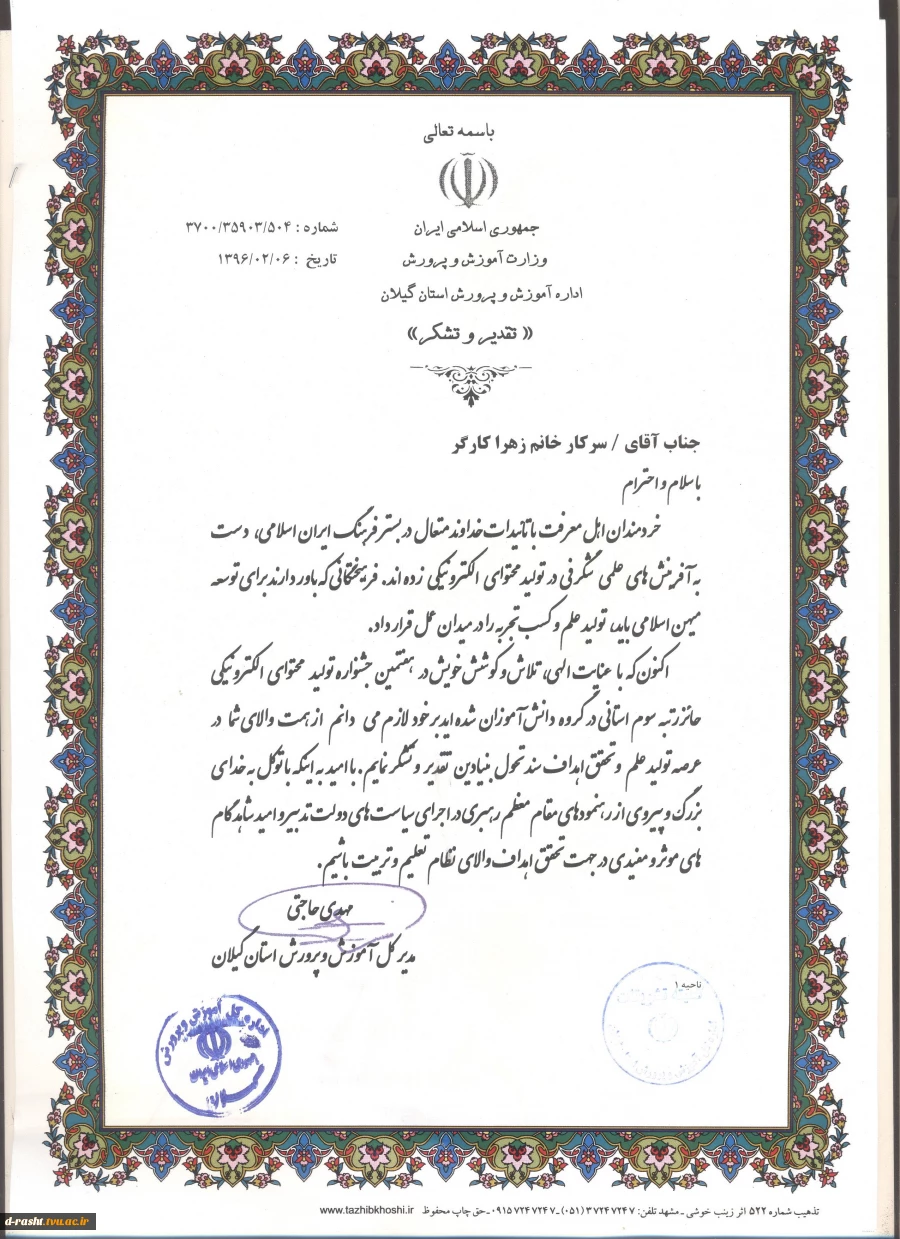 باسمه تعالی
جمهوری اسلامی ایران
شماره : ۳۷۰۰/۳۵۹۰۳/۵۰۴
وزارت آموزش و پرورش
تاریخ : ۱۳۹۶/۰۲/۰۶
اداره آموزش و پرورش استان گیلان
« تقدیر و تشکر»
جناب آقای / سرکار خانم زهرا کارگر
با سلام و احترام
خردمندان اهل معرفت با تائیدات خداوند متعال در بستر فرهنگ ایران اسلامی، دست
به آفرینش های علمی شگرفی در تولید محتوای الکترونیکی زده اند. فرهیختگانی که باور دارند برای توسعه
میهن اسلامی باید، تولید علم و کسب تجربه را در میدان عمل قرار داد.
اکنون که با عنایت الهی، تلاش و کوشش خویش در هفتمین جشنواره تولید محتوای الکترونیکی
حائز رتبه سوم استانی در گروه دانش آموزان شده اید بر خود لازم می دانم از همت والای شما در
عرصه تولید علم و تحقق اهداف سند تحول بنیادین تقدیر و تشکر نمایم. با امید به اینکه با توکل به خدای
بزرگ و پیروی از رهنمودهای مقام معظم رهبری در اجرای سیاست های دولت تدبیر و امید شاهد گام
های موثر و مفیدی در جهت تحقق اهداف والای نظام تعلیم و تربیت باشیم.
مهدی حاجتی
مدیر کل آموزش و پرورش استان گیلان
ناحیه ۱
اداره کل آموزش و پرورش
جمهوری اسلامی ایران
گیلان
تذهیب شماره ۵۲۲ اثر زینب خوشی ـ مشهد تلفن: ۳۷۲۴۷۲۴۷ (۰۵۱) ـ ۰۹۱۵۷۲۴۷۲۴۷ـ حق چاپ محفوظ www.tazhibkhoshi.ir
d-rasht.tvu.ac.ir